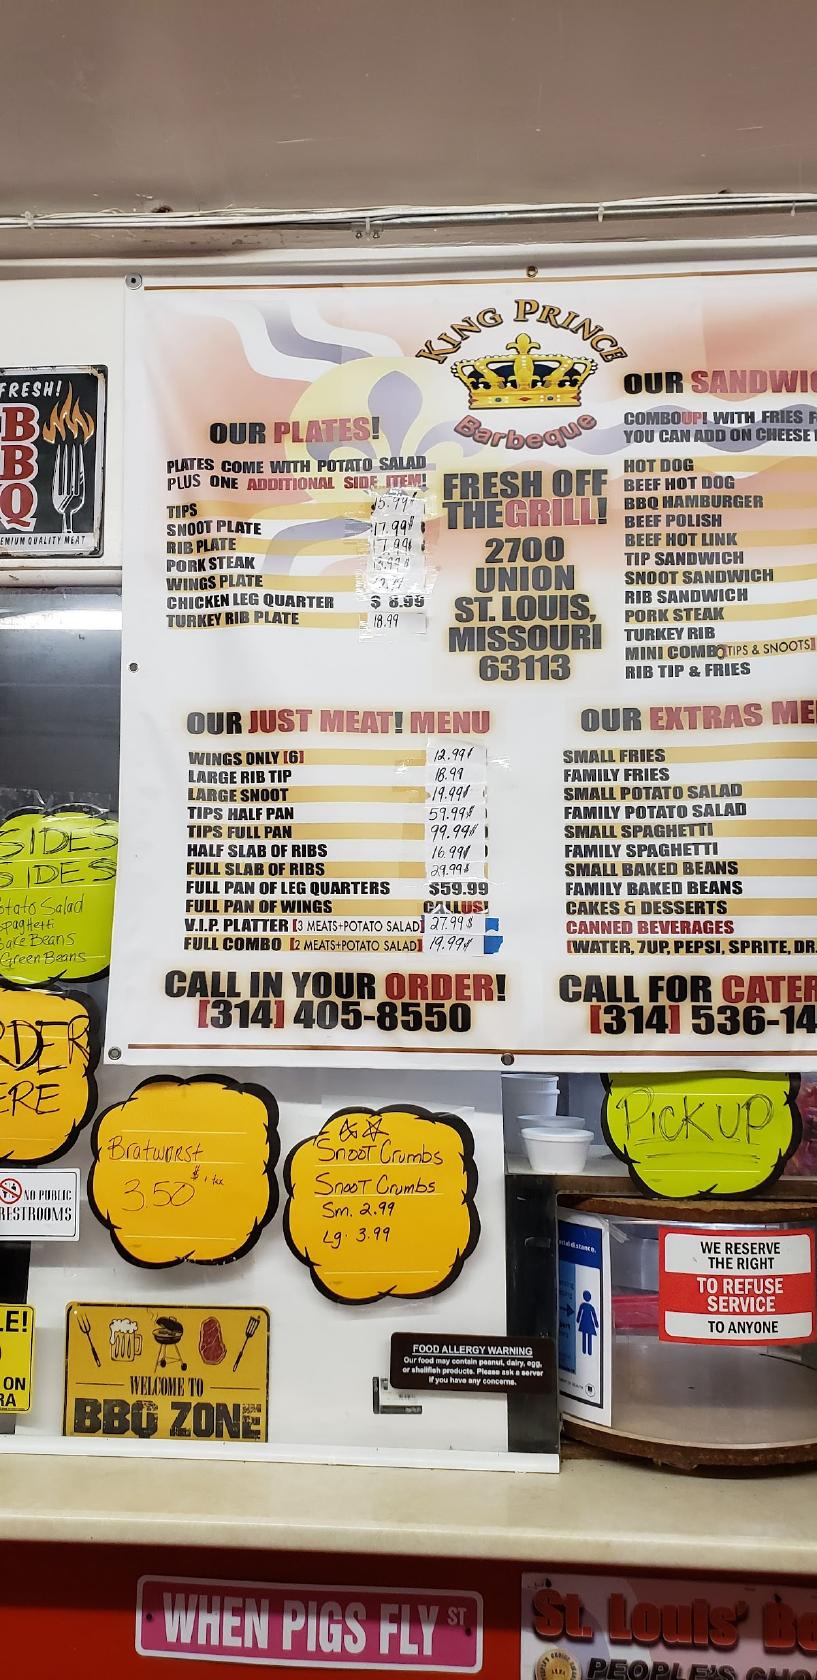 FRESH!
BBQ
EMIUM QUALITY MEAT
KING PRINCE
Barbeque
OUR PLATES!
PLATES COME WITH POTATO SALAD
PLUS ONE ADDITIONAL SIDE ITEM!
TIPS 15.99¢
SNOOT PLATE 17.99¢
RIB PLATE 17.99¢
PORK STEAK
WINGS PLATE
CHICKEN LEG QUARTER $ 8.99
TURKEY RIB PLATE 18.99
FRESH OFF
THE GRILL!
2700
UNION
ST. LOUIS,
MISSOURI
63113
OUR SANDWIC
COMBO UP! WITH FRIES F
YOU CAN ADD ON CHEESE
HOT DOG
BEEF HOT DOG
BBQ HAMBURGER
BEEF POLISH
BEEF HOT LINK
TIP SANDWICH
SNOOT SANDWICH
RIB SANDWICH
PORK STEAK
TURKEY RIB
MINI COMBO [TIPS & SNOOTS]
RIB TIP & FRIES
OUR JUST MEAT! MENU
WINGS ONLY [6] 12.99¢
LARGE RIB TIP 18.99
LARGE SNOOT 19.99¢
TIPS HALF PAN 59.99¢
TIPS FULL PAN 99.99¢
HALF SLAB OF RIBS 16.99¢
FULL SLAB OF RIBS 29.99¢
FULL PAN OF LEG QUARTERS $59.99
FULL PAN OF WINGS CALL US!
V.I.P. PLATTER [3 MEATS+POTATO SALAD] 27.99¢
FULL COMBO [2 MEATS+POTATO SALAD] 19.99¢
OUR EXTRAS ME
SMALL FRIES
FAMILY FRIES
SMALL POTATO SALAD
FAMILY POTATO SALAD
SMALL SPAGHETTI
FAMILY SPAGHETTI
SMALL BAKED BEANS
FAMILY BAKED BEANS
CAKES & DESSERTS
CANNED BEVERAGES
[WATER, 7UP, PEPSI, SPRITE, DR.
CALL IN YOUR ORDER!
[314] 405-8550
CALL FOR CATER
[314] 536-14
SIDES
SIDES
otato Salad
spaghetti
Bake Beans
Green Beans
RDER
ERE
Bratworst
3.50 $ + tax
Snoot Crumbs
Snoot Crumbs
Sm. 2.99
Lg. 3.99
Pick up
NO PUBLIC
RESTROOMS
LE!
ON
RA
WELCOME TO
BBQ ZONE
FOOD ALLERGY WARNING
Our food may contain peanut, dairy, egg,
or shellfish products. Please ask a server
if you have any concerns.
cial distance.
WE RESERVE
THE RIGHT
TO REFUSE
SERVICE
TO ANYONE
WHEN PIGS FLY ST
St. Louis' Be
PEOPLE'S CHO